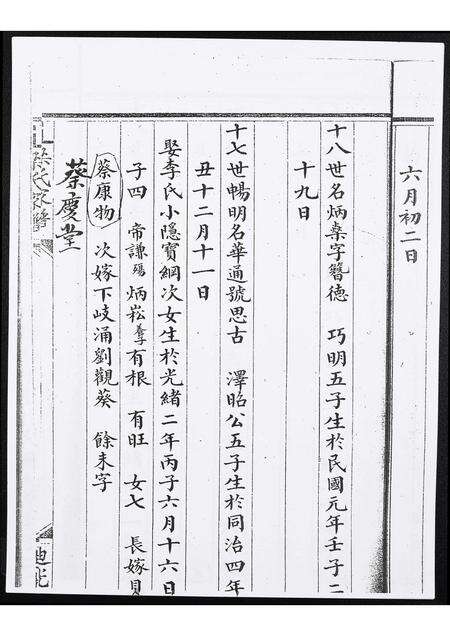 六月初二日
十八世名炳燊字簪德　巧明五子生於民國元年壬子二
十九日
十七世暢明名華通號思古　澤昭公五子生於同治四年
丑十二月十一日
娶李氏小隱寶綱次女生於光緒二年丙子六月十六日
子四　帝謙殤　炳崧養子　有根　有旺　女七　長嫁貝
蔡康物　次嫁下岐涌劉觀葵　餘未字
蔡慶堂
徐氏家譜